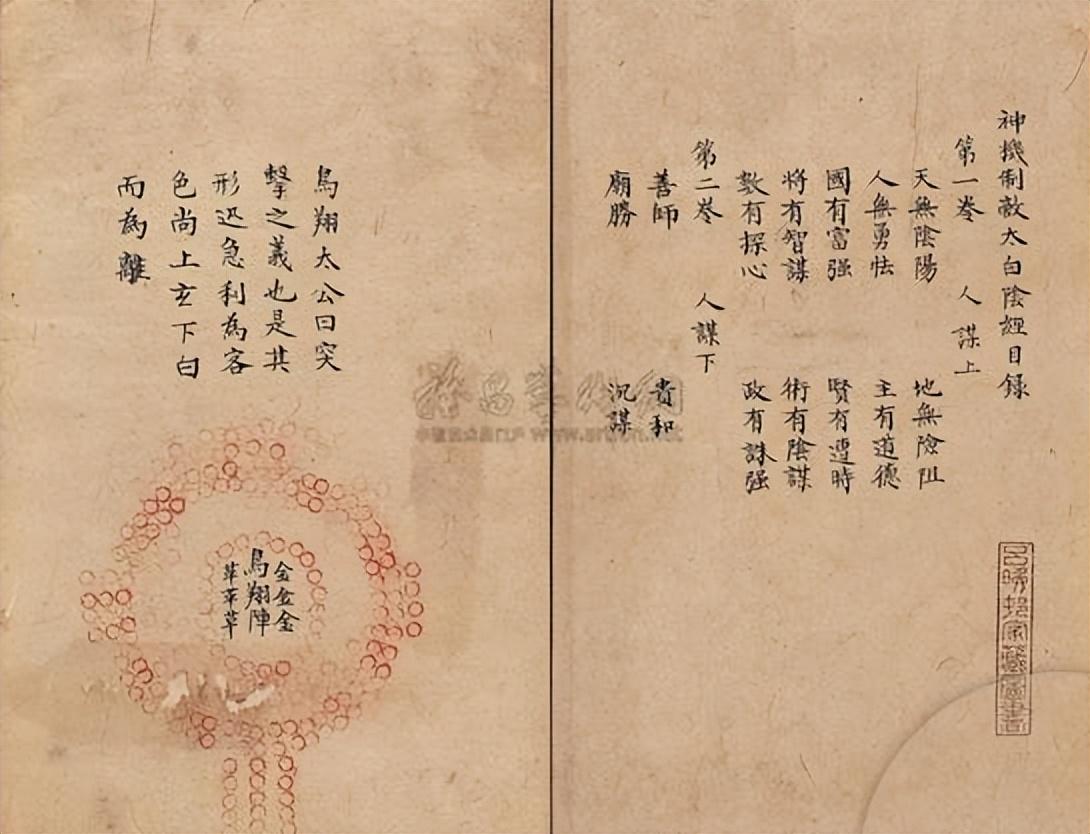 神機制敵太白陰經目録
第一卷 人謀上
天無陰陽 地無險阻
人無勇怯 主有道德
國有富强 賢有遭時
將有智謀 術有陰謀
數有探心 政有誅强
第二卷 人謀下
善師 貴和
廟勝 沉謀
鳥翔太公曰突
擊之義也是其
形迅急利為客
色尚上玄下白
而為離
金金金
鳥翔陣
革革革